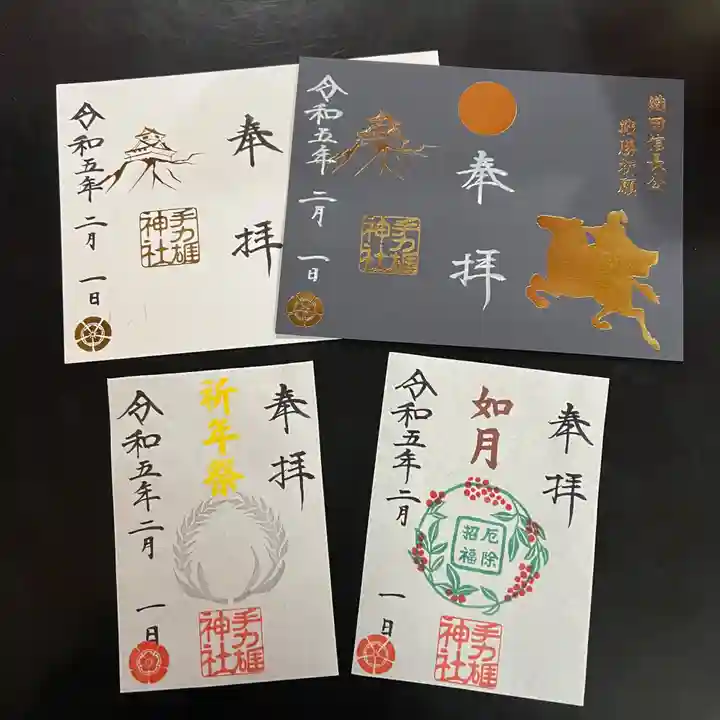 奉拝
手力雄神社
令和五年二月一日
織田信長公
戦勝祈願
奉拝
手力雄神社
令和五年二月一日
奉拝
祈年祭
手力雄神社
令和五年二月一日
奉拝
如月
厄除
招福
手力雄神社
令和五年二月一日